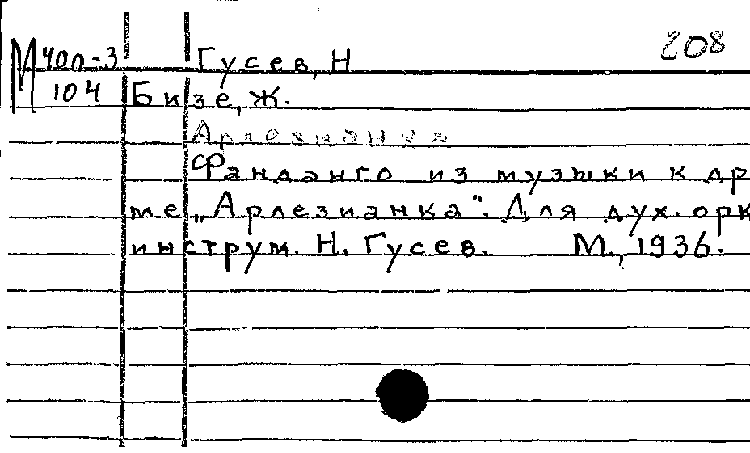 208
М 400-3 Гусев, Н
104 Бизе, Ж.
Арлезианка
Фанданго из музыки к др
ме „Арлезианка". Для дух. орк
инструм. Н. Гусев. М., 1936.